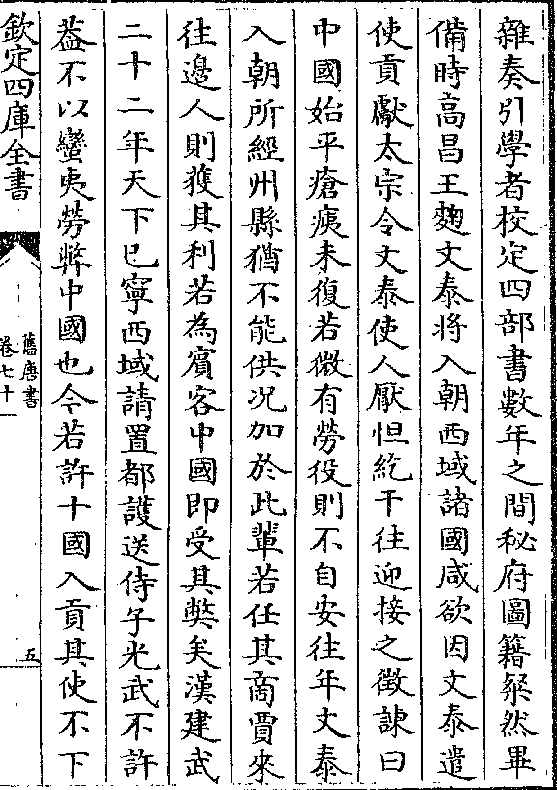 雜奏引學者校定四部書數年之間秘府圖籍粲然畢
備時高昌王麴文泰將入朝西域諸國咸欲因文泰遣
使貢獻太宗令文泰使人厭怛紇干往迎接之徵諫曰
中國始平瘡痍未復若微有勞役則不自安往年文泰
入朝所經州縣猶不能供況加於此輩若任其商賈來
往邊人則獲其利若為賓客中國即受其弊矣漢建武
二十二年天下已寧西域請置都護送侍子光武不許
葢不以蠻夷勞弊中國也今若許十國入貢其使不下
欽定四庫全書
舊唐書
卷七十一
五